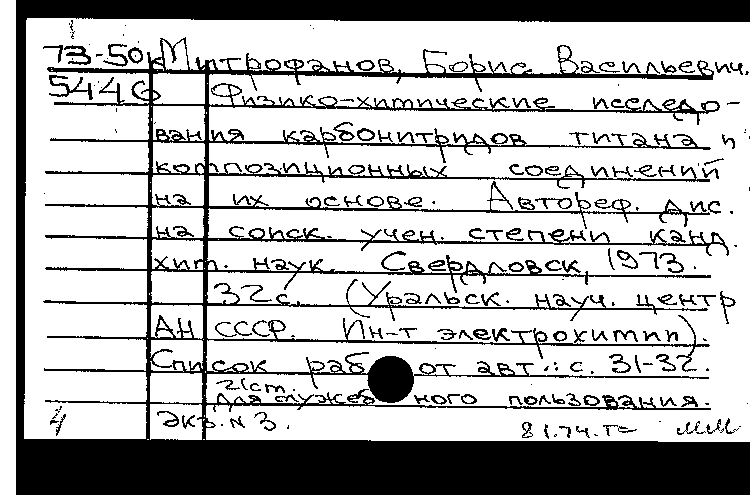 73-50к Митрофанов, Борис Васильевич.
5446 Физико-химические исследо-
вания карбонитридов титана и
композиционных соединений
на их основе. Автореф. дис.
на соиск. учен. степени канд.
хим. наук. Свердловск, 1973.
32 с. (Уральск. науч. центр
АН СССР. Ин-т электрохимии).
Список работ авт.: с. 31-32.
21ст.
Для служебного пользования.
4 Экз. № 3. 81.74.Т= мм